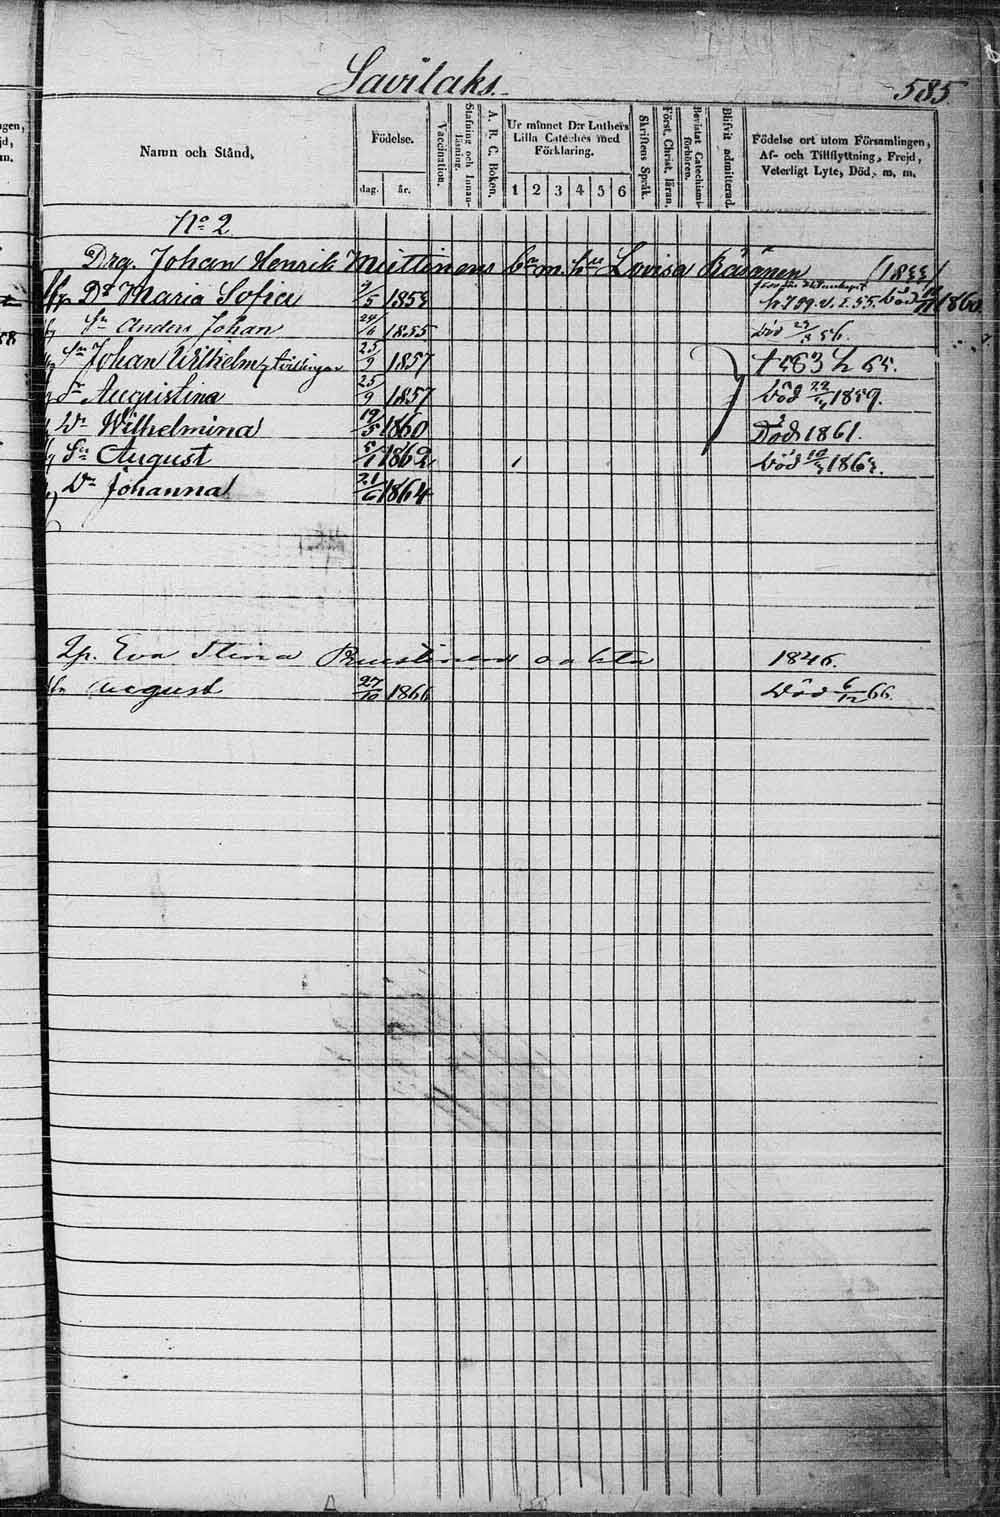 Savilaks.
585
Namn och Stånd,
Födelse.
dag.
år.
Vaccination.
Stafning och Innan-läsning.
A. B. C. Boken.
Ur minnet D:r Luthers Lilla Cateches med Förklaring.
1 2 3 4 5 6
Skriftens Språk.
Först. Christ. läran.
Bevistat Catechismi-förhören.
Blifvit admitterad.
Födelse ort utom Församlingen, Af- och Tillflyttning, Frejd, Veterligt Lyte, Död, m. m.
No 2
Drg. Johan Henrik Muttinens bn m. hu Lovisa Räsänen (1833)
Dr Maria Sofia 3/5 1853 död 1860
Sn Anders Johan 24/6 1855 död 23/3 56.
Sn Johan Wilhelm tvillingar 25/9 1857 † s 63 h 65.
Dr Augustina 25/9 1857 död 22/4 1859.
Dr Wilhelmina 19/5 1860 Död 1861.
Sn August 5/1 1862 död 10/3 1863.
Dr Johanna 21/6 1864
Qp. Eva Stina oäkta 1846.
Sn August 27/10 1866 Död 6/12 66.